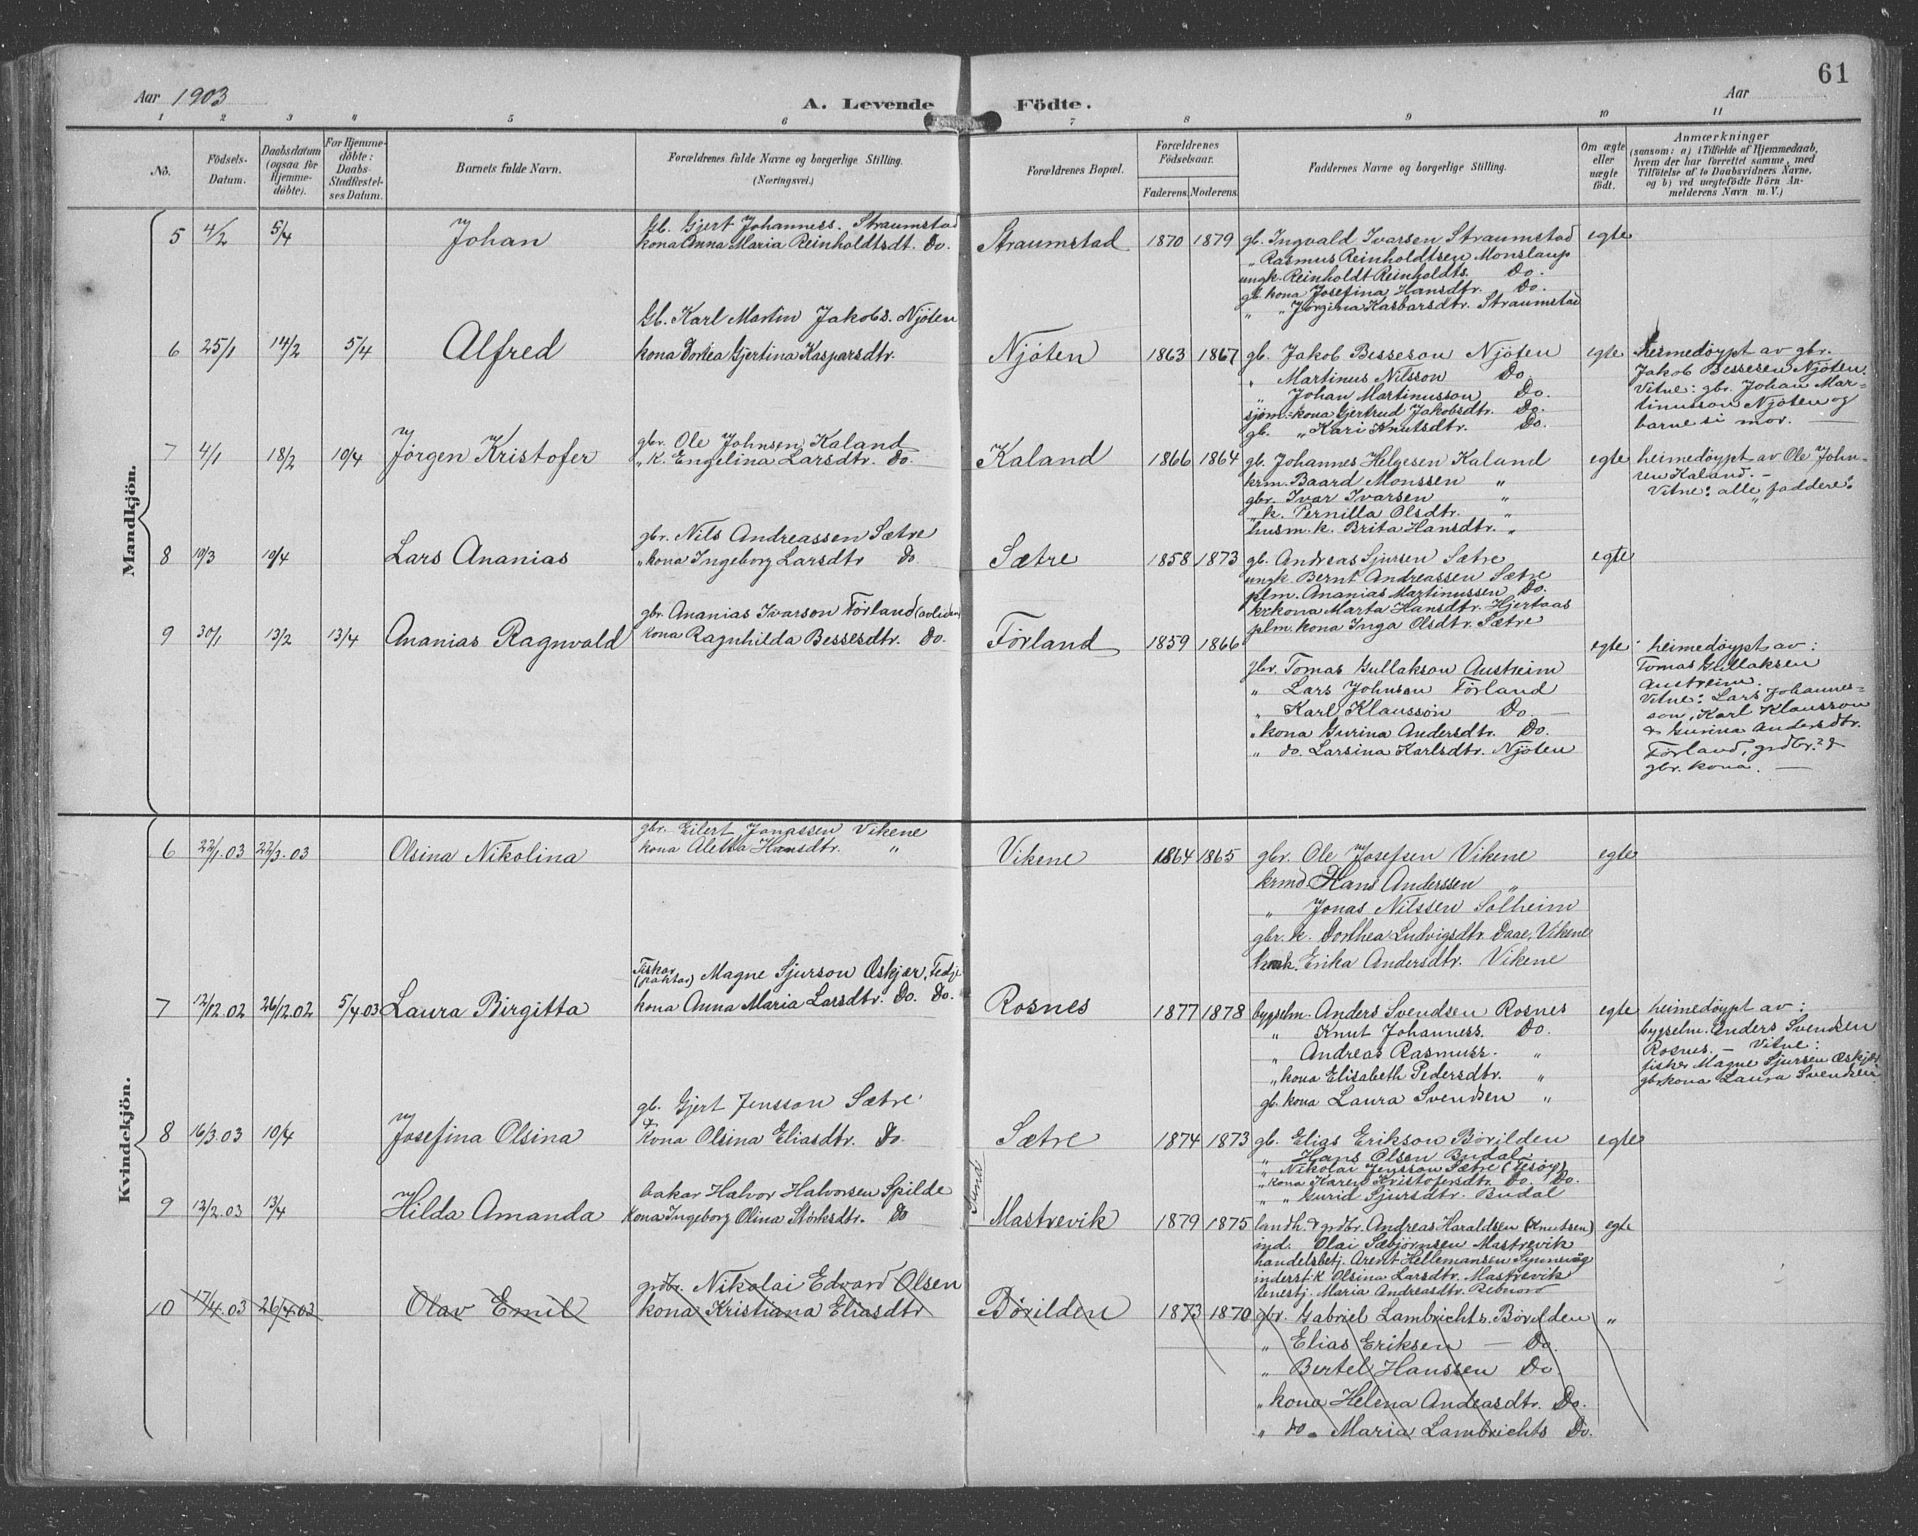 61
Aar 1903
A. Levende Födte.
Aar
1 2 3 4 5 6 7 8 9 10 11
No.
Födsels-Datum.
Daabsdatum (ogsaa for Hjemme-döbte).
For Hjemme-döbte: Daabs-Stadfæstel-ses Datum.
Barnets fulde Navn.
Forældrenes fulde Navne og borgerlige Stilling.
(Næringsvei.)
Forældrenes Bopæl.
Forældrenes Födselsaar.
Faderens. Moderens.
Faddernes Navne og borgerlige Stilling.
Om ægte eller uægte födt.
Anmærkninger
(saasom: a) i Tilfælde af Hjemmedaab,
hvem der har forrettet samme, med
Tilföielse af to Daabsvidners Navne,
og b) ved uægtefödte Börn An-
melderens Navn m. V.)
Mandkjön.
5 4/2 5/4 Johan
Gb. Gjert Johanness. Straumstad
kona Anna Maria Reinholdtsdt. Do.
Straumstad 1870 1879
gb. Ingvald Ivarsen Straumstad egte
" Rasmus Reinholdtsen Monslaup
ungk. Reinholdt Reinholdts. Do.
gb. kona Josefina Hansdtr. Do.
" " Jørgina Kasbarsdtr. Straumstad
Gb. Karl Martin Jakobs. Njøten
6 25/1 14/2 5/4 Alfred
kona Dortea Gjertina Kasparsdtr.
Njøten 1863 1867
gb. Jakob Besseson Njøten egte
" Martinus Nilsson Do.
" Johan Martinusson Do.
sjøm.-kona Gjertrud Jakobsdtr. Do.
gb. " Kari Knutsdtr. Do.
heimedøypt av gbr.
Jakob Bessesen Njøten.
Vitne: gbr. Johan Mar-
tinusson Njøten og
barne si mor. —
7 4/1 18/2 10/4 Jørgen Kristofer
gbr. Ole Johnsen Kaland
" k. Engelina Larsdtr. Do.
Kaland 1866 1864
gb. Johannes Helgesen Kaland egte
krm. Baard Monssen "
gbr. Ivar Ivarsen "
" k. Pernilla Olsdtr. "
husm. k. Brita Hansdtr. "
heimedøypt av Ole John-
sen Kaland. —
Vitne: alle faddere.
8 19/3 10/4 Lars Ananias
gbr. Nils Andreassen Sætre
" kona Ingeborg Larsdtr Do.
Sætre 1858 1873
gb. Andreas Sjursen Sætre egte
ungk. Bernt Andreassen Sætre
plm. Ananias Martinussen Do.
krkona Marta Hansdtr. Hjertaas
plm. kona Inga Olsdtr. Sætre
9 30/1 13/2 13/4 Ananias Ragnvald
gbr. Ananias Ivarson Førland (avliden)
kona Ragnhilda Bessesdtr. Do.
Førland 1859 1866 egte
gbr. Tomas Gullakson Austreim
" Lars Johnsen Førland
" Karl Klausson Do. —
" kona Gurina Andersdtr. Do.
" do. Larsina Karlsdtr. Njøten
heimedøypt av:
Tomas Gullaksen
Austreim.
Vitne: Lars Johannes-
son, Karl Klausson
& Gurina Andersdtr.
Førland, grdbr. &
gbr. kona. —
Kvindekjön.
6 22/1.03 22/3.03 Olsina Nikolina
gbr. Eilert Jonassen Vikene
kona Aletta Hansdtr. "
Vikene 1864 1865
gbr. Ole Josefsen Vikene egte
krmd. Hans Anderssen "
" Jonas Nilssen Solheim
gbr. k. Dorthea Ludvigsdtr. Daae, Vikene
Erika Andersdtr. Vikene
7 12/12.02 26/12.02 5/4.03 Laura Birgitta
Fiskar Magne Sjurson Oskjær, Fedje
kona Anna Maria Larsdtr. Do. Do.
Rosnes 1877 1878
bygselm. Anders Svendsen Rosnes egte
" Knut Johanness. Do.
" Andreas Rasmuss. "
" kona Elisabeth Pedersdtr. "
gb. kona Laura Svendsen "
heimedøypt av:
bygselm. Anders Svendsen
Rosnes. — Vitne:
fisker Magne Sjursen Oskjær
gbrkona Laura Svendsen
8 16/3.03 10/4 Josefina Olsina
gb. Gjert Jensson Sætre
& kona Olsina Eliasdtr. Do.
Sætre 1874 1873
gb. Elias Erikson Børilden egte
" Hans Olsen Budal
" Nikolai Jensson Sætre
" kona Karen Kristofersdtr. Do. Do.
" " Gurid Sjursdtr. Budal
9 12/2.03 13/4 Hilda Amanda
bakar Halvor Halvorsen Spilde
kona Ingeborg Olina Størksdtr. Do
Sund
Mastrevik 1879 1875
landh. & grdbr. Andreas Haraldsen (Knutsen) egte
ind. Olai Sæbjørnsen Mastrevik
handelsbetj. Arent Hellemansen Synnevåg
inderst. k Olsina Larsdtr. Mastrevik
tenestj. Maria Andreasdtr. Rebnord
10 17/4.03 26/4.03 Olav Emil
grdbr. Nikolai Edvard Olsen
kona Kristiana Eliasdtr
Børilden 1873 1870
gbr. Gabriel Lambrichts. Børilden "
" Elias Eriksen — Do.
" Bertel Hanssen Do
" kona Helena Andeasdtr. Do.
" do. Maria Lambrichts Do.